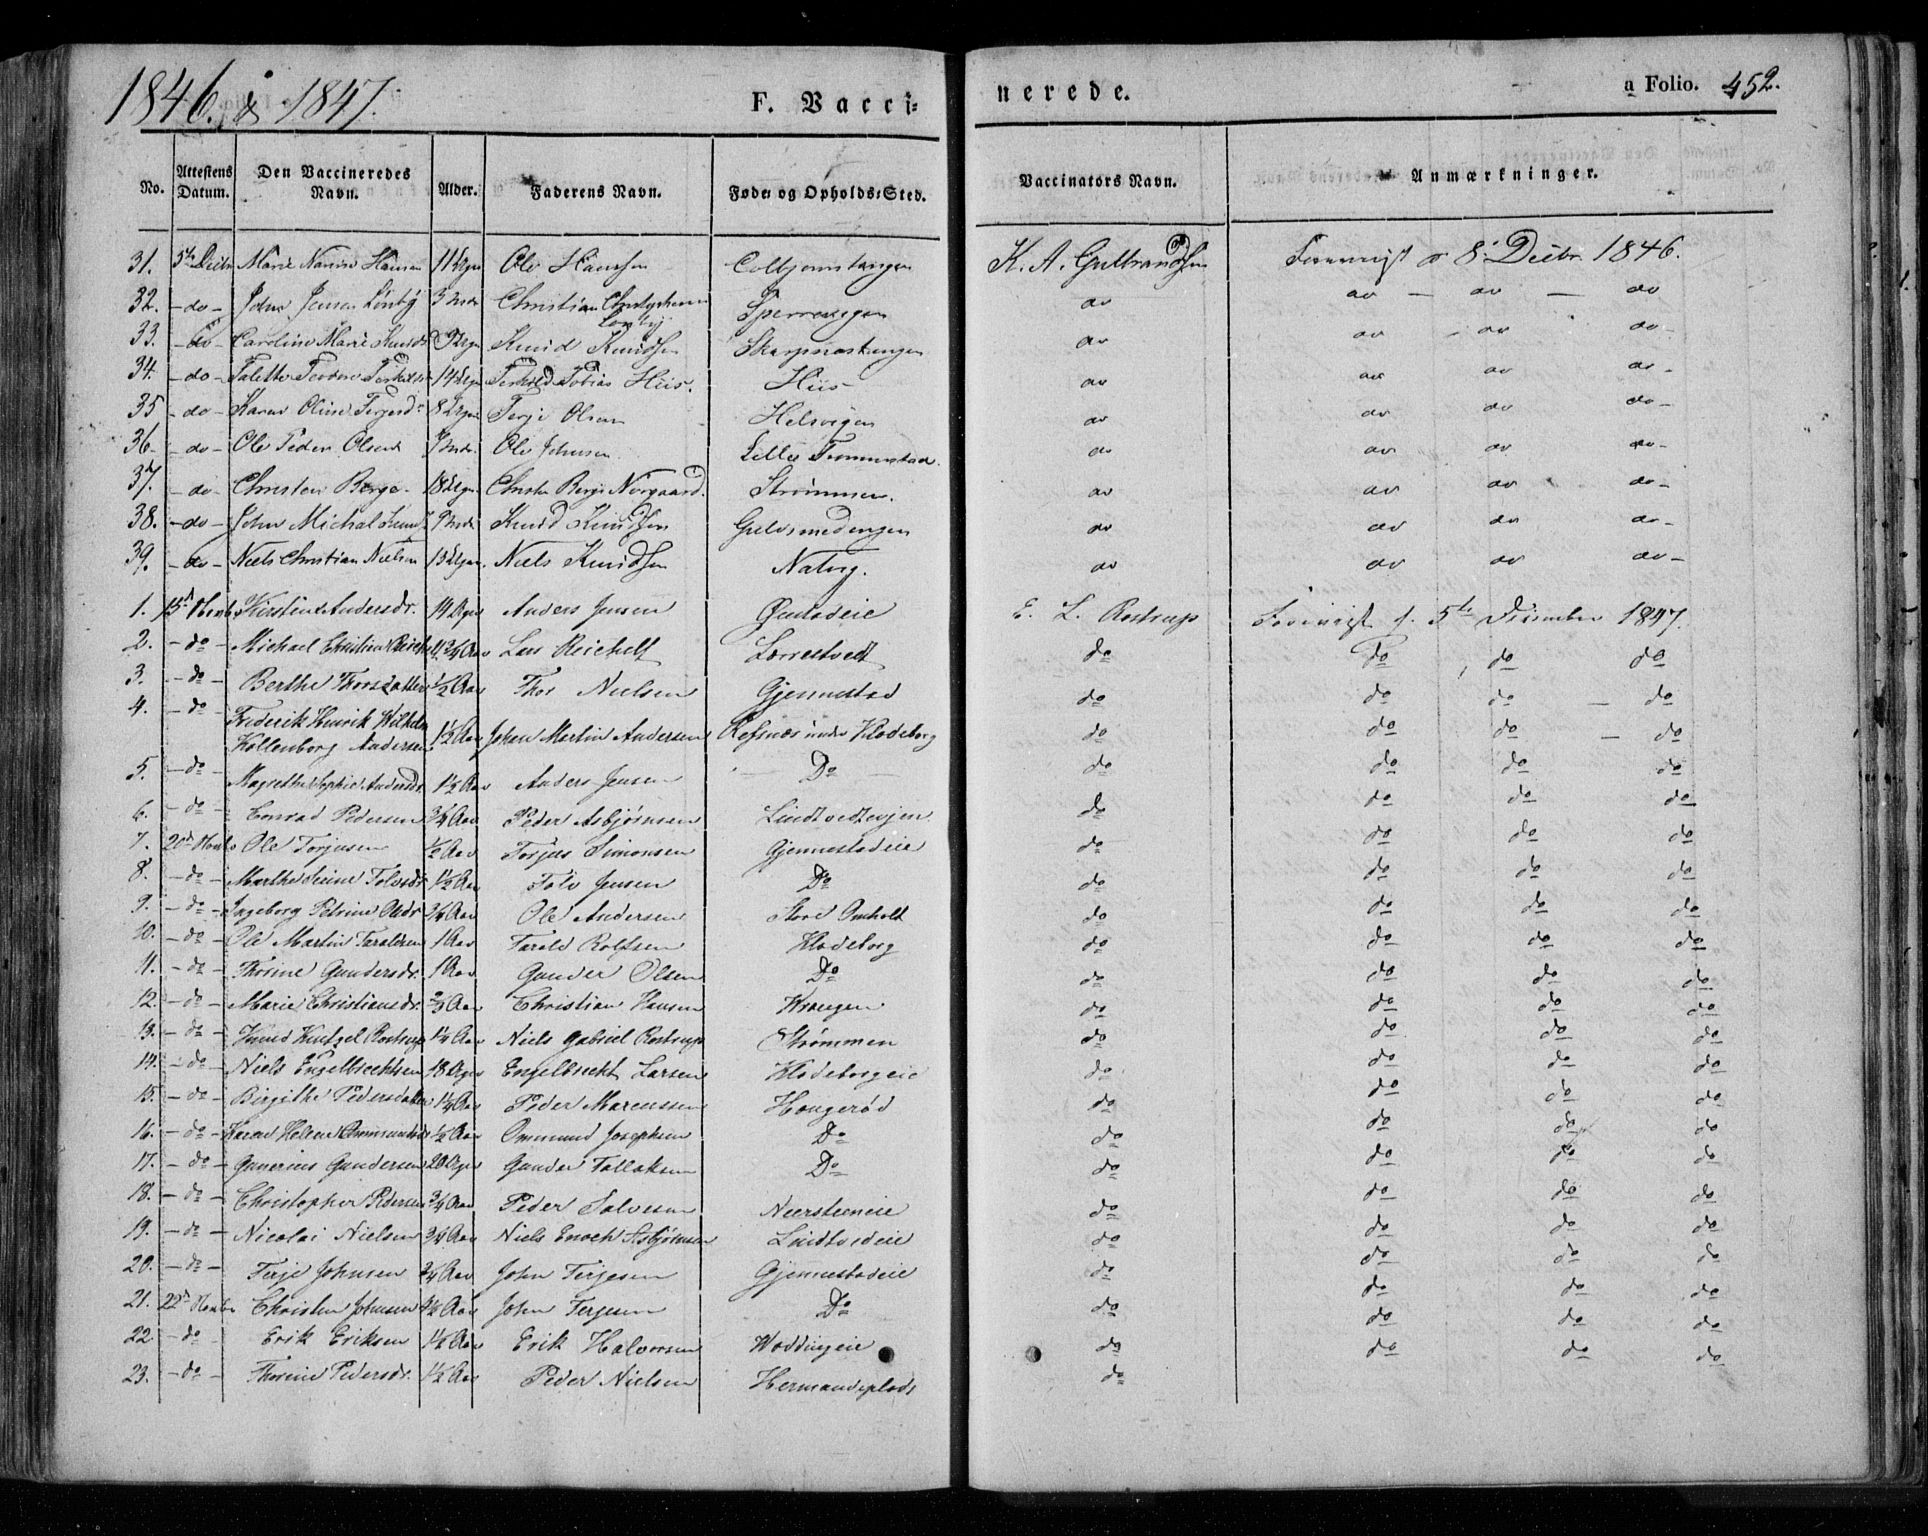 1846. & 1847.
F. Vacci=
nerede.
a Folio. 452.
No. Attestens Datum. Den Vaccineredes Navn. Alder. Faderens Navn. Føde= og Opholds=Sted. Vaccinators Navn. Anmærkninger.
31. 5te Decbr Marie Hansen 11 Ole Hanssen K. A. Gulbrandsen 8 Decbr. 1846.
32. -do- John Jensen Lønby 3 Christian Christophersen Lønby do do - do - do
33. -do- Caroline Marie 9 Knud Knudsen do do do do-
34. -do- 14 Tobias Hiis. Hiis do do do do-
35 -do- Karen Oline 8 Terje Olsen Helsvigen do do do do-
36- -do- Ole Peder Olsen 9 Ole Johnsen Lille do do do do-
37. -do- Christen Berge 18 Christen Berge Norgaard. Strømmen. do do do do-
38. -do- John Michal 9 Knud Knudsen do do do do-
39. -do- Niels Christian Nielsen 13 Niels Knudsen Natvig. do do do do-
1. 15d Novbr Kirstine Andersdr. 14 Uger Anders Jensen E. L. Rostrup 5te December 1847.
2. -do- Michael Christian Lars Reichelt Lørrestvedt do do do do
3. -do- Berthe Thorsdatter 1/2 Aar Thor Nielsen Gjennestad do do do do
4. -do- Frederik Henrik Wilhelm
Kollenborg Andersen 1 1/2 Aar Johan Martin Andersen Refsnæs under Klodeborg do do do - do
5. -do- Magrethe Sophie Andersdr 1 1/2 Aar Anders Jensen Do do do do do
6. -do- Conrad Pedersen 3/4 Aar Peder Asbjørnsen do do do do
7. 20d Novbr Ole Torjusen 1/2 Aar Torjus Simonsen Gjennestadeie do do do do
8. -do- Marthe Tolvsdr 1 1/2 Aar Tolv Jensen Do do do do do
9. -do- Ingeborg Petrine Olsdr 3/4 Aar Ole Andersen Store Omholt do do do do
10. -do- Ole Martin Taraldsen 1 Aar Tarald Rolfsen Klodeborg do do do do
11. -do- Thorine Gundersdr. 1 Aar Gunder Olsen Do do do do do
12. -do- Marie Christiansdr. Christian Hansen do do do do
13. -do- Knud Rostrup 1 1/4 Aar Niels Gabriel Rostrup Strømmen do do do do
14. -do- Niels Engelbrechtsen 18 Uger Engelbrecht Larsen Klodeborgeie do do do do
15. -do- Birgithe Pedersdatter 1 1/4 Aar Peder Marcussen Haugerød do do do do
16. -do- Karen Helene Ommundsdr 1/2 Aar Ommund Josephsen Do do do do do
17. -do- Gunerius Gundersen 20 Uger Gunder Tallaksen Do do do do do
18. -do- Christopher Pedersen 3/4 Aar Peder Salvesen Neersteneie do do do do
19. -do- Nicolai Nielsen 3/4 Aar Niels Enoch Asbjørnsen Lindtvedeie do do do do
20. -do- Terje Johnsen 3/4 Aar John Terjesen Gjennestadeie do do do do
21. 22d Novbr Christen Johnsen John Terjesen Do do do do do
22. -do- Erik Eriksen 1 1/2 Aar Erik Halvorsen do do do do
23. -do- Thorine Pedersdr. 1 1/2 Aar Peder Nielsen Hermandsplads do